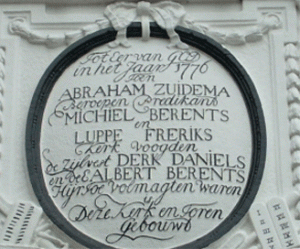 Tot Eer van GOD
in het Jaar 1776
Toen
ABRAHAM ZUIDEMA
Beroepen Predikant
MICHIEL BERENTS
en
LUPPE FRERIKS
Kerk voogden
de Zijlvest DERK DANIELS
en de ALBERT BERENTS
Volmagten waren
is
Deze Kerk en Toren
gebouwt